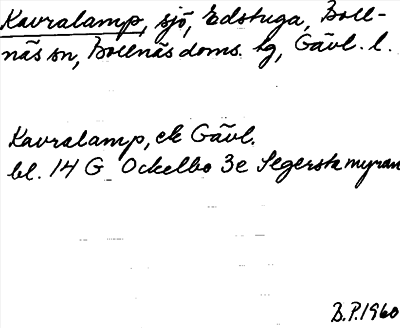 Kavralamp, sjö, Edstuga, Boll-
näs sn, Bollnäs doms. tg, Gävl. l.
Kavralamp, ek Gävl.
bl. 14 G Ockelbo 3e Segerstamyran
B.P. 1960